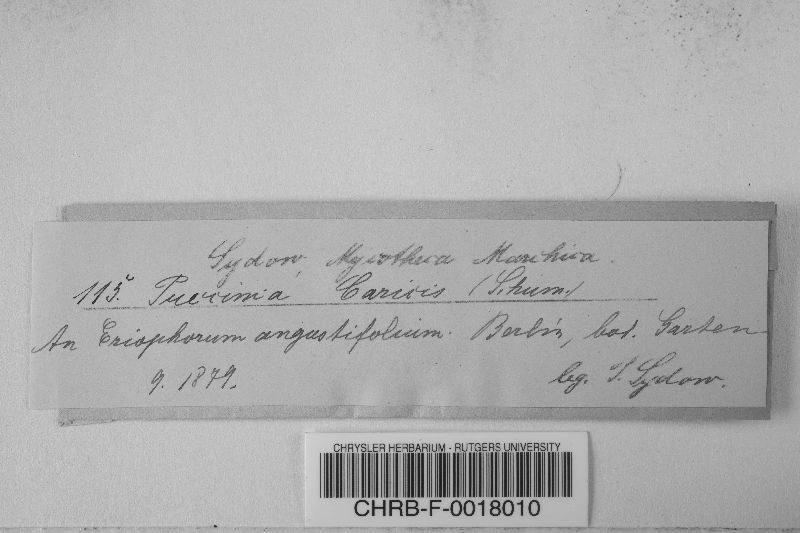 Sydow, Mycotheca Marchica.
115. Puccinia Caricis (Schum.)
An Eriophorum angustifolium. Berlin, bot. Garten
9. 1879.
leg. P. Sydow.
CHRYSLER HERBARIUM - RUTGERS UNIVERSITY
CHRB-F-0018010